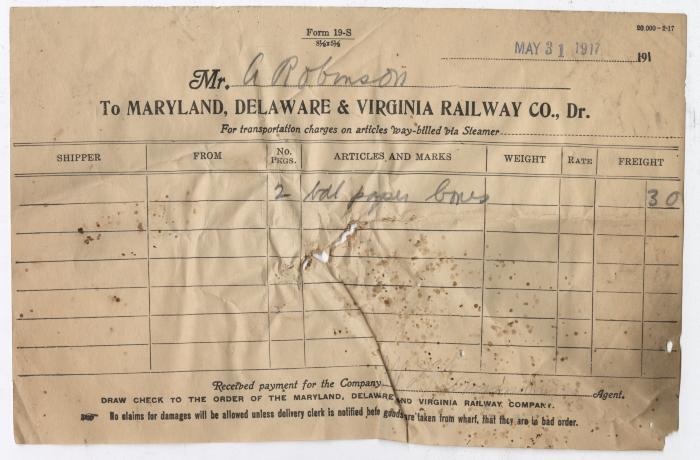 Form 19-S
8½x5½
20,000-2-17
MAY 31 1917 191
Mr. A Robinson
To MARYLAND, DELAWARE & VIRGINIA RAILWAY CO., Dr.
For transportation charges on articles way-billed via Steamer
SHIPPER FROM No. PKGS. ARTICLES AND MARKS WEIGHT RATE FREIGHT
2 bdl paper boxes 30
Received payment for the Company Agent.
DRAW CHECK TO THE ORDER OF THE MARYLAND, DELAWARE AND VIRGINIA RAILWAY COMPANY.
No claims for damages will be allowed unless delivery clerk is notified befo goods are taken from wharf, that they are in bad order.